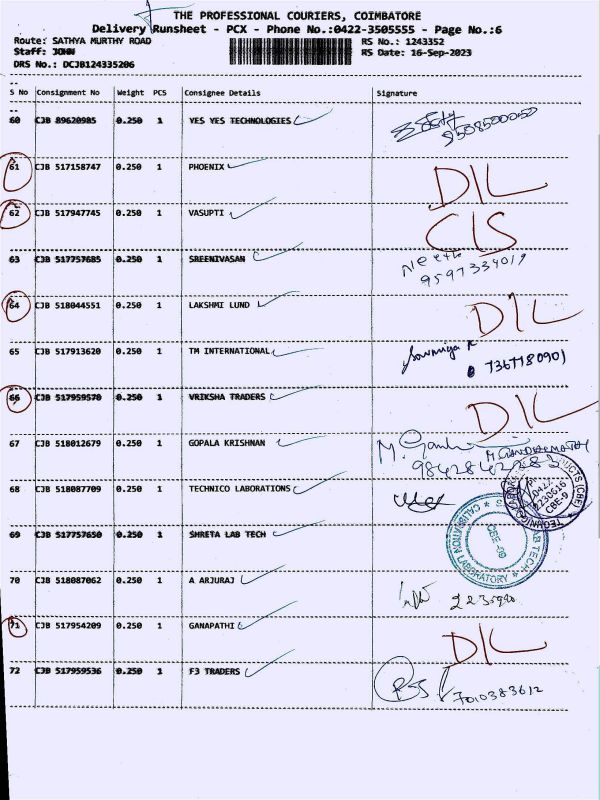 THE PROFESSIONAL COURIERS, COIMBATORE
Delivery Runsheet - PCX - Phone No.:0422-3505555 - Page No.:6
Route: SATHYA MURTHY ROAD RS No.: 1243352
Staff: JOHN RS Date: 16-Sep-2023
DRS No.: DCJB124335206
S No Consignment No Weight PCS Consignee Details Signature
60 CJB 89620985 0.250 1 YES YES TECHNOLOGIES
61 CJB 517158747 0.250 1 PHOENIX DIL
62 CJB 517947745 0.250 1 VASUPTI CIS
63 CJB 517757685 0.250 1 SREENIVASAN
9597334019
64 CJB 518044551 0.250 1 LAKSHMI LUND DIL
65 CJB 517913620 0.250 1 TM INTERNATIONAL Sowmiya R
7367780901
66 CJB 517959570 0.250 1 VRIKSHA TRADERS DIL
67 CJB 518012679 0.250 1 GOPALA KRISHNAN
68 CJB 518087709 0.250 1 TECHNICO LABORATIONS
CBE-9
69 CJB 517757650 0.250 1 SHRETA LAB TECH
LAB TECH CALIBRATION LABORATORY
70 CJB 518087062 0.250 1 A ARJURAJ
71 CJB 517954209 0.250 1 GANAPATHI DIL
72 CJB 517959536 0.250 1 F3 TRADERS
7010383612